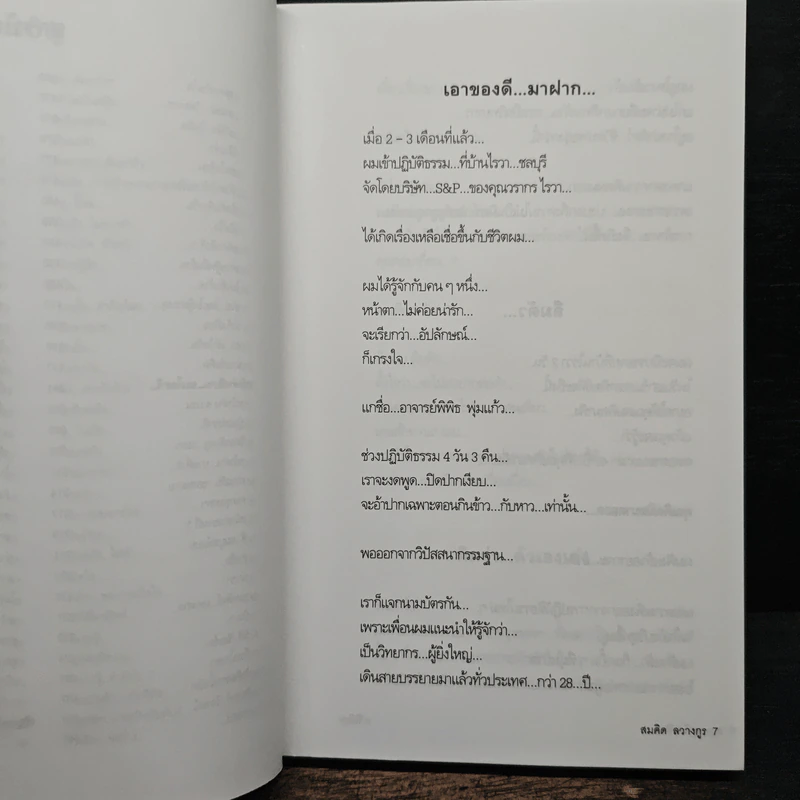 เอาของดี...มาฝาก...
เมื่อ 2 – 3 เดือนที่แล้ว...
ผมเข้าปฏิบัติธรรม...ที่บ้านไรวา...ชลบุรี
จัดโดยบริษัท...S&P...ของคุณวรากร ไรวา...
ได้เกิดเรื่องเหลือเชื่อขึ้นกับชีวิตผม...
ผมได้รู้จักกับคน ๆ หนึ่ง...
หน้าตา...ไม่ค่อยน่ารัก...
จะเรียกว่า...อัปลักษณ์...
ก็เกรงใจ...
แกชื่อ...อาจารย์พิพิธ พุ่มแก้ว...
ช่วงปฏิบัติธรรม 4 วัน 3 คืน...
เราจะงดพูด...ปิดปากเงียบ...
จะอ้าปากเฉพาะตอนกินข้าว...กับหาว...เท่านั้น...
พอออกจากวิปัสสนากรรมฐาน...
เราก็แจกนามบัตรกัน...
เพราะเพื่อนผมแนะนำให้รู้จักว่า...
เป็นวิทยากร...ผู้ยิ่งใหญ่...
เดินสายบรรยายมาแล้วทั่วประเทศ...กว่า 28...ปี...
สมคิด ลวางกูร 7